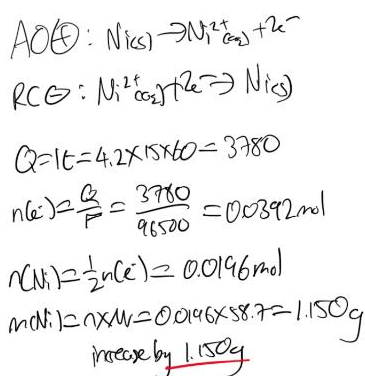 AO⊕: Ni(s) → Ni²⁺(aq) + 2e⁻
RC⊖: Ni²⁺(aq) + 2e⁻ → Ni(s)
Q=It=4.2×15×60=3780
n(e⁻)=Q/F=3780/96500=0.0392mol
n(Ni)=½n(e⁻)=0.0196mol
m(Ni)=n×M=0.0196×58.7=1.150g
increase by 1.150g